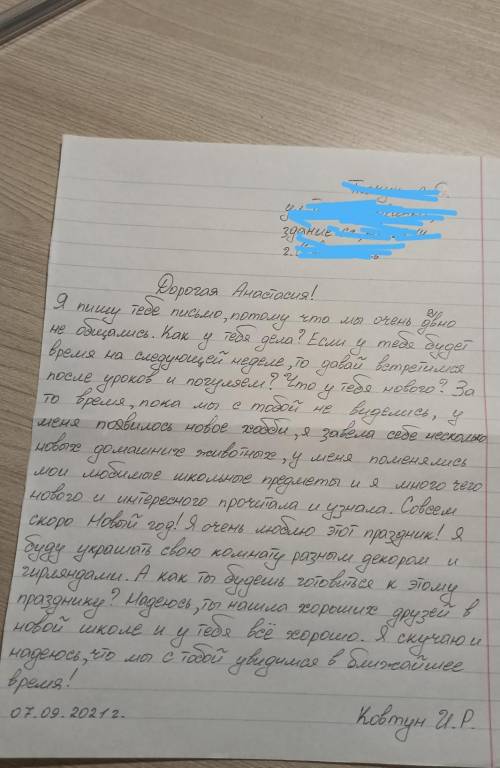 здание
г.
Дорогая Анастасия!
Я пишу тебе письмо, потому что мы очень давно
не общались. Как у тебя дела? Если у тебя будет
время на следующей неделе, то давай встретимся
после уроков и погуляем? Что у тебя нового? За
то время, пока мы с тобой не виделись, у
меня появилось новое хобби, я завела себе несколько
новых домашних животных, у меня поменялись
мои любимые школьные предметы и я много чего
нового и интересного прочитала и узнала. Совсем
скоро Новый год! Я очень люблю этот праздник! Я
буду украшать свою комнату разным декором и
гирляндами. А как ты будешь готовиться к этому
празднику? Надеюсь, ты нашла хороших друзей в
новой школе и у тебя всё хорошо. Я скучаю и
надеюсь, что мы с тобой увидимся в ближайшее
время!
07.09.2021г. Ковтун И.Р.